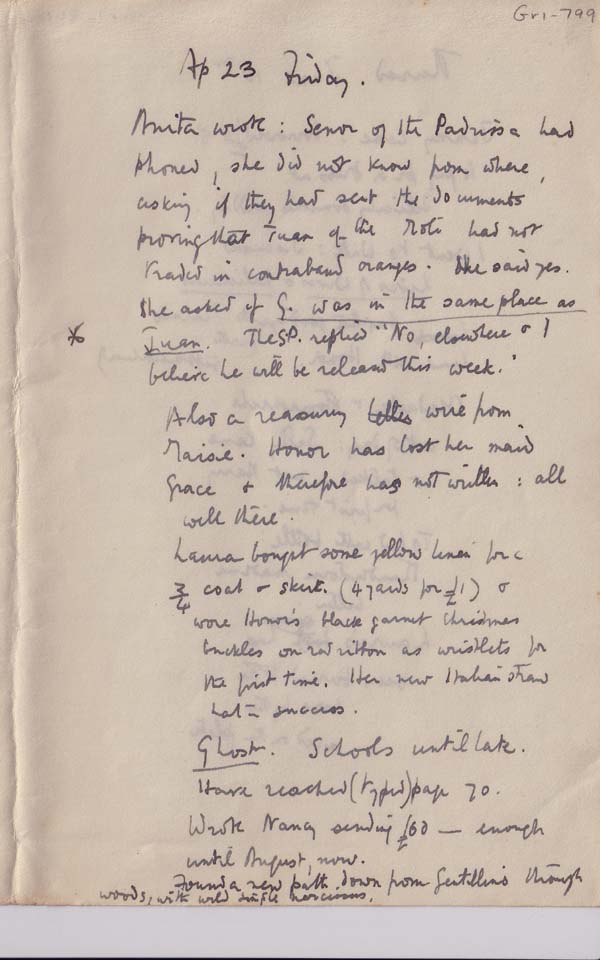 Gri-799
Ap 23 Friday.
Anita wrote: Senor of the Padrissa had
phoned, she did not know from where,
asking if they had sent the documents
proving that Juan of the Roti had not
traded in contraband oranges. She said yes.
She asked if G. was in the same place as
Juan. The SP. replied "No, elsewhere & I
believe he will be released this week."
Also a reassuring letter wire from
Maisie. Honor has lost her maid
Grace & therefore has not written: all
well there.
Laura bought some yellow linen for a
3/4 coat & skirt. (4 yards for £1) &
wore Honor's black garnet Christmas
buckles on red ribbon as wristlets for
the first time. Her new Italian straw
hat = success.
Ghost. Schools until late.
Have reached (typed) page 70.
Wrote Nancy sending £60 — enough
until August, now.
Found a new path down from Gentillino through
woods, with wild single narcissus.